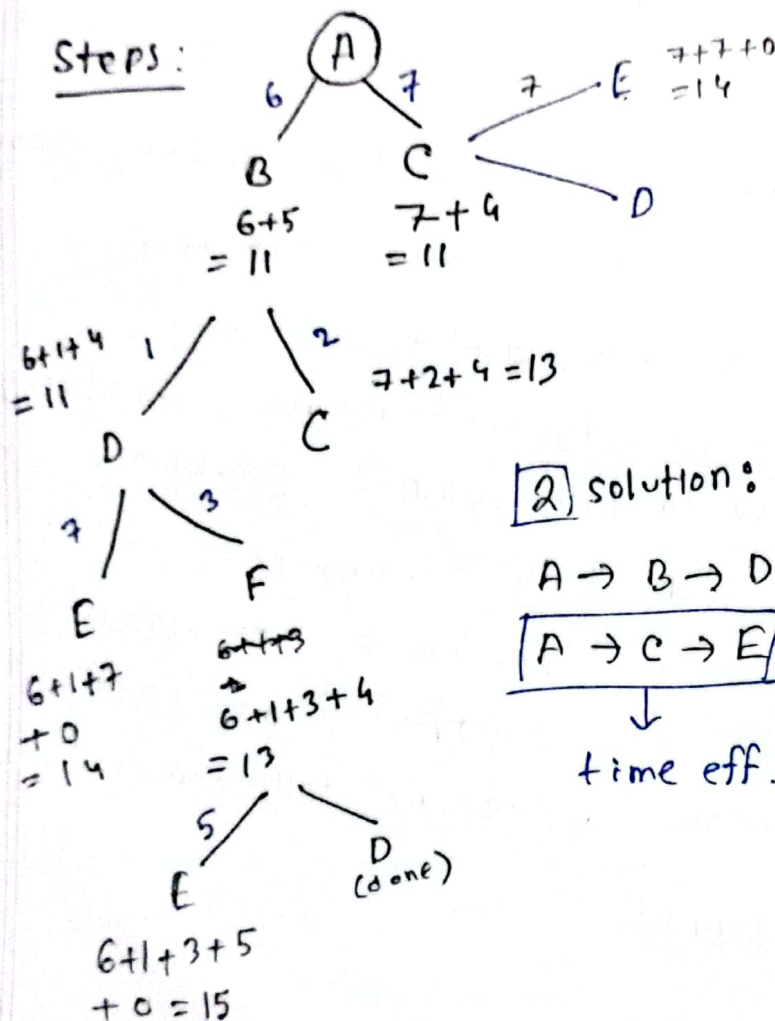 Steps:
A
6 7 7 E 7+7+0
=14
B C D
6+5 7+4
=11 =11
6+1+4 1 2
=11
7+2+4=13
D C
7 3
E F
6+1+7
+0
=14
6+1+3
6+1+3+4
=13
5
E D
(done)
6+1+3+5
+0=15
2 solution:
A → B → D
A → C → E
time eff.